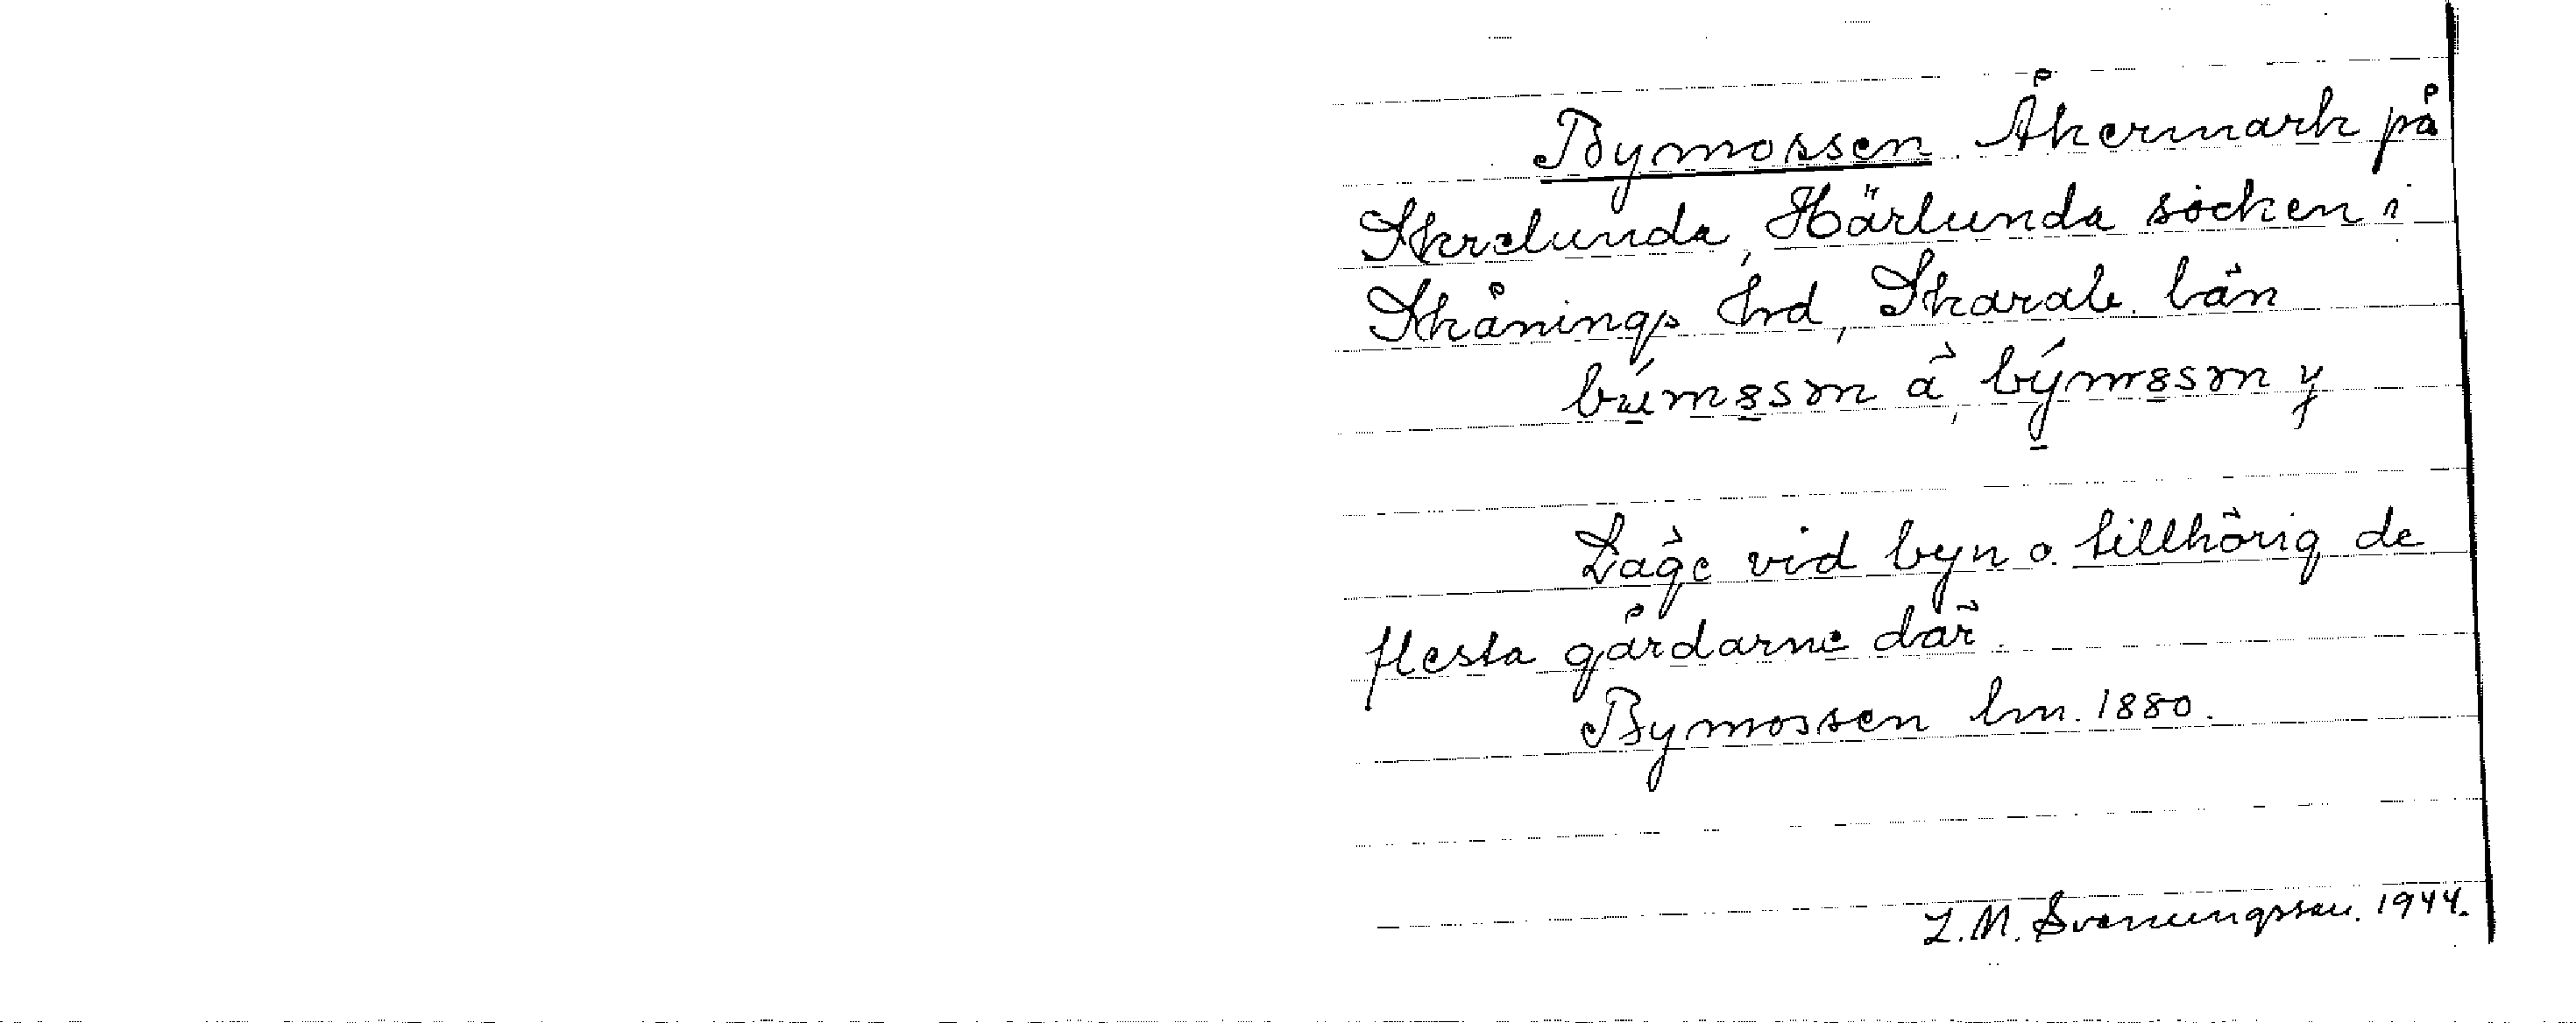 Bymossen Åkermark på
Skrelunda, Härlunda socken i
Skånings hrd, Skarab. län
Läge vid byn o. tillhörig de
flesta gårdarne där.
Bymossen lm. 1880.
L. M. Svenungsson. 1944.